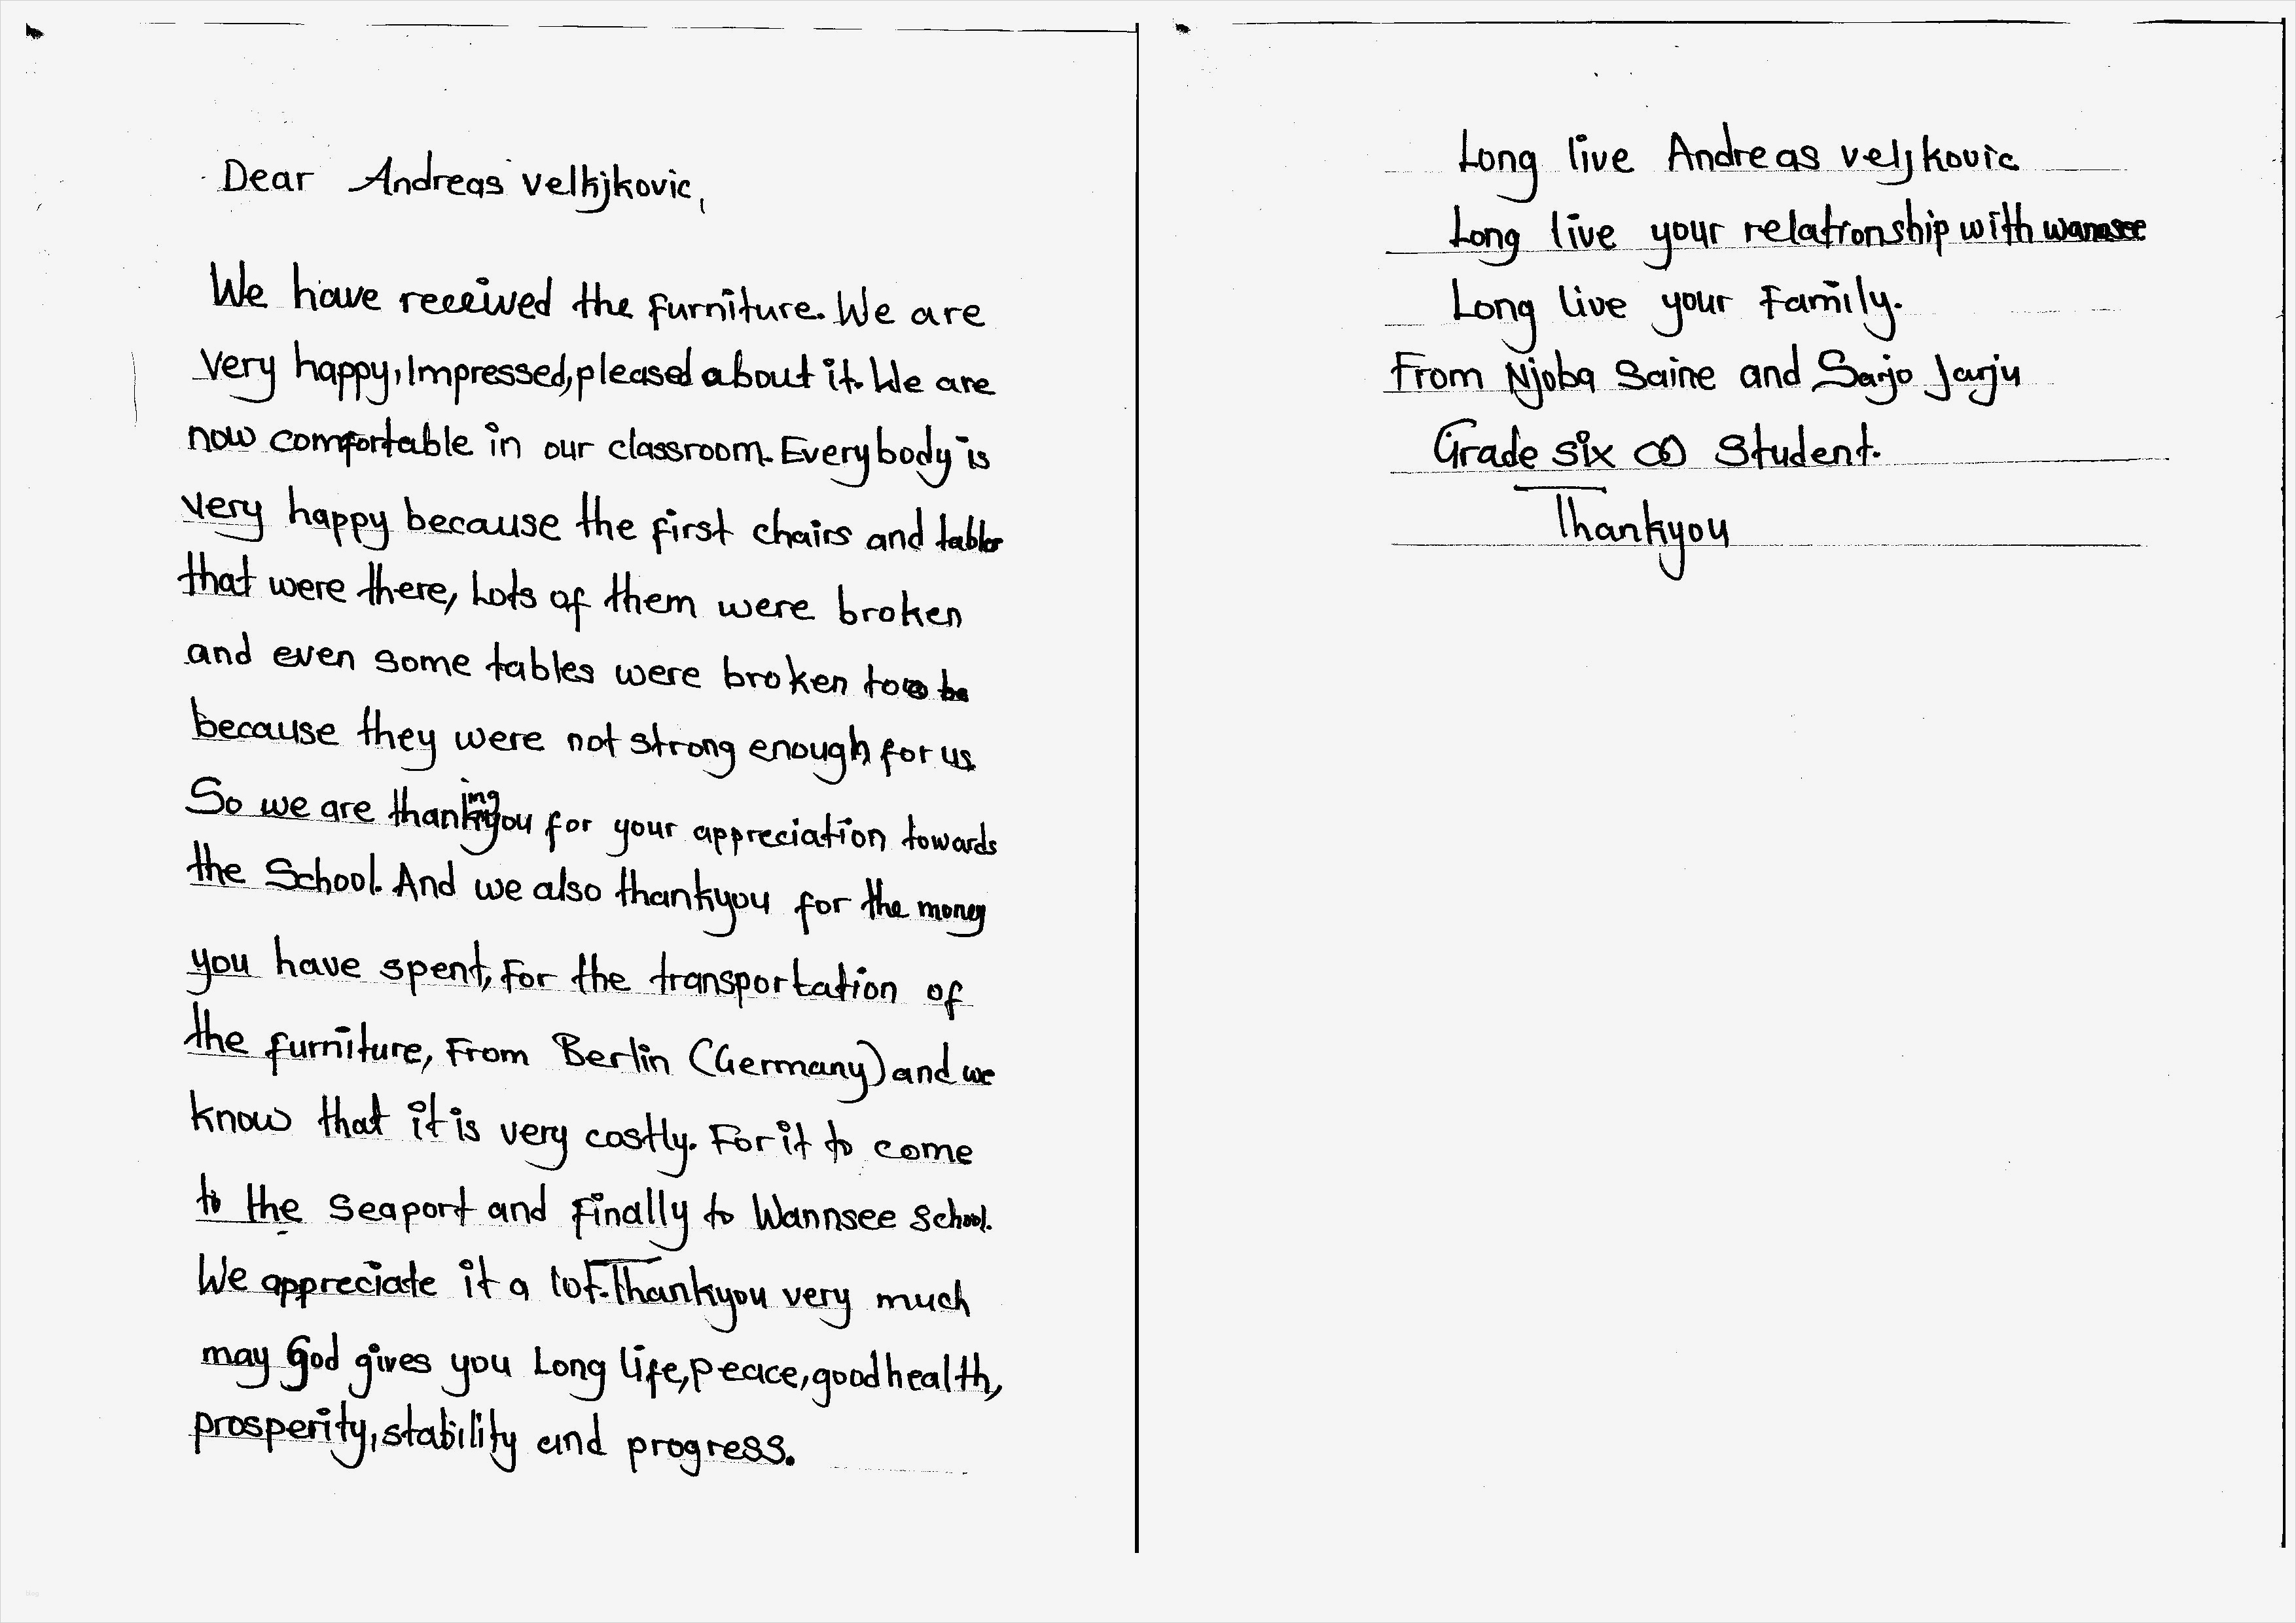 Dear Andreas Velkjkovic,
We have received the furniture. We are
very happy, Impressed, pleased about it. We are
now comfortable in our classroom. Everybody is
very happy because the first chairs and tables
that were there, Lots of them were broken
and even some tables were broken too be
because they were not strong enough for us
So we are thanking you for your appreciation towards
the School. And we also thankyou for the money
you have spent, For the transportation of
the furniture, From Berlin (Germany) and we
know that it is very costly. For it to come
to the Seaport and Finally to Wannsee School.
We appreciate it a lot. Thankyou very much
may God gives you Long life, peace, good health,
prosperity, stability and progress.
Long live Andreas veljkovic
Long live your relationship with wannsee
Long live your Family.
From Njoba Saine and Sarjo Jarju
Grade six Student.
Thankyou